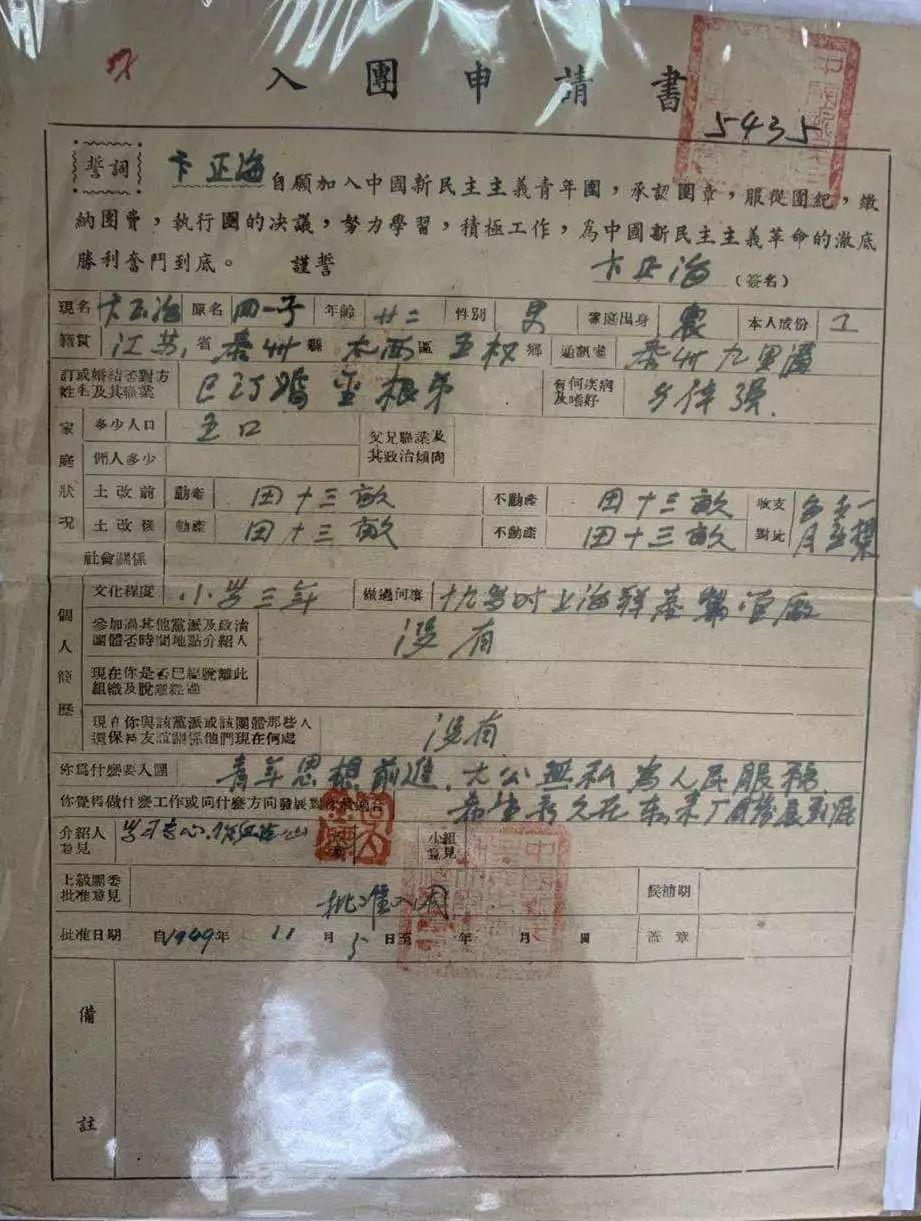 入團申請書
5435
誓詞
卞正海自願加入中國新民主主義青年團，承認團章，服從團紀，繳
納團費，執行團的决議，努力學習，積極工作，為中國新民主主義革命的澈底
勝利奮鬥到底。 謹誓 卞正海（簽名）
現名 卞正海 原名 四一子 年齡 廿二 性別 男 家庭出身 農 本人成份 工
籍貫 江苏省 泰州縣 太西區 五权鄉 通訊處 泰州九里溝
訂或婚結否對方姓名及其職業 已订婚 根弟 有何疾病及嗜好
家庭狀况
多少人口 五口 父兄職業及其政治傾向
佣人多少
土改前 動產 田十三畝 不動產 田十三畝 收支
土改後 動產 田十三畝 不動產 田十三畝 對比
社會關係
個人簡歷
文化程度 小学三年 做過何事 十九岁时上海
參加過其他黨派及政治團體否時間地點介紹人 没有
現在你是否已經脫離此組織及脫離經過
現在你與該黨派或該團體那些人還保持友誼關係他們現在何處 没有
你為什麼要入團 青年思想前進.大公無私為人民服務
你覺得做什麼工作或向什麼方向發展對你最適合
介紹人意見 学习专心. 小組意見
上級團委批准意見 批准入团 候補期
批准日期 自1949年 11月5日至 年 月 日 蓋章
備註